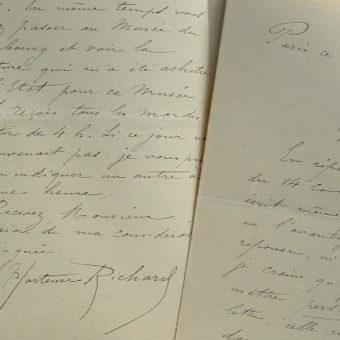 En même temps vous
passer au Musée du
bourg et voir la
ture qui m'a été achetée
l'Etat pour ce Musée.
reçois tous les mardis
de 4 h. Si ce jour ne
convenait pas, je vous prie
indiquer un autre
heure.
Recevez Monsieur
de ma considérat
Hortense Richard
Paris ce
En rép
du 14 cou
écrit même
en l'avant
réponse, ni
je crains qu
mettre
lettre, celle-ci